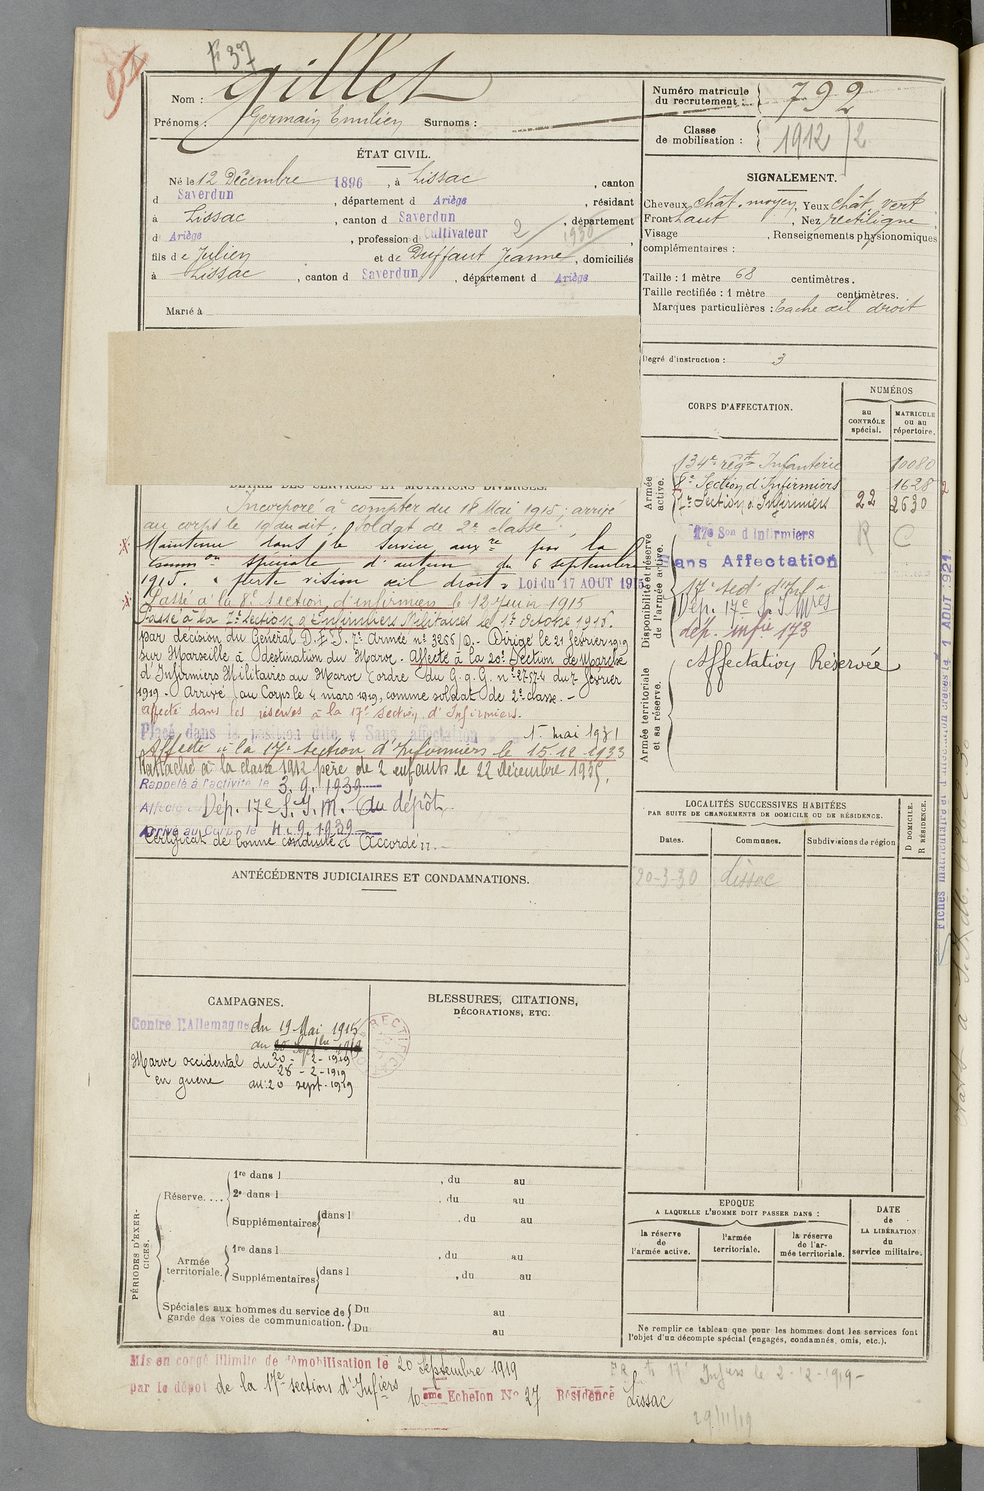 F 37
Nom : Gillet
Prénoms : Germain Emilien Surnoms :
Numéro matricule du recrutement : 792
Classe de mobilisation : 1912/2
ÉTAT CIVIL.
Né le 12 Décembre 1896, à Lissac, canton
d Saverdun, département d Ariège, résidant
à Lissac, canton d Saverdun, département
d Ariège, profession d Cultivateur 2 1930
fils de Julien et de Duffaut Jeanne, domiciliés
à Lissac, canton d Saverdun, département d Ariège
Marié à
SIGNALEMENT.
Cheveux chât. moyen, Yeux chât. vert
Front haut, Nez rectiligne
Visage , Renseignements physionomiques
complémentaires :
Taille : 1 mètre 68 centimètres.
Taille rectifiée : 1 mètre centimètres.
Marques particulières : tache œil droit
Degré d'instruction : 3
DÉTAIL DES SERVICES ET MUTATIONS DIVERSES.
Incorporé à compter du 18 Mai 1915, arrivé
au corps le 19 du dit, soldat de 2e classe.
Maintenu dans le service auxre par la
Common spéciale d' du 6 septembre
1915. " perte vision œil droit " Loi du 17 AOUT 1915
Passé à la 8e section d'infirmiers le 12 Juin 1915
Passé à la 7e Section d'Infirmiers Militaires le 1er Octobre 1918.
par décision du Général D.E.S. 7e Armée n° 3266/D. - Dirigé le 21 février 1919
sur Marseille à destination du Maroc. Affecté à la 20e Section de Marche
d'Infirmiers Militaires au Maroc (ordre du G.q.G. n° 27574 du 7 février
1919 - Arrivé au Corps le 4 mars 1919, comme soldat de 2e classe. -
affecté dans les réserves à la 17e section d'Infirmiers.
Placé dans la position dite « Sans affectation » 1er mai 1931
Affecté à la 17e section d'Infirmiers le 15.12.1933
Rattaché à la classe 1912 père de 2 enfants le 22 Décembre 1935.
Rappelé à l'activité le 3.9.1939
Affecté Dép. 17e S.I.M. du dépôt
Arrivé au Corps le 4.9.1939
Certificat de bonne conduite « Accordé ». -
CORPS D'AFFECTATION.
NUMÉROS
au CONTRÔLE spécial.
MATRICULE ou au répertoire.
Armée active.
134e régt Infanterie 10080
8e Section d'Infirmiers 1628
7e Section d'Infirmiers 22 2630
Disponibilité et réserve de l'armée active.
17e Son d'infirmiers R C
Sans Affectation
17e Sect d'Inf
Dép. 17e S. Infres
dép. infie 173
Armée territoriale et sa réserve.
Affectation Réservée
LOCALITÉS SUCCESSIVES HABITÉES
PAR SUITE DE CHANGEMENTS DE DOMICILE OU DE RÉSIDENCE.
Dates. Communes. Subdivisions de région D DOMICILE. R RÉSIDENCE.
20-3-30 Lissac
ANTÉCÉDENTS JUDICIAIRES ET CONDAMNATIONS.
CAMPAGNES.
Contre l'Allemagne du 19 Mai 1915
au
20 - 2 - 1919
Maroc occidental du 28 - 2 - 1919
en guerre au 20 sept. 1919
BLESSURES, CITATIONS,
DÉCORATIONS, ETC.
RECTIFICA
PÉRIODES D'EXERCICES.
Réserve....
1re dans l , du au
2e dans l , du au
Supplémentaires dans l , du au
Armée territoriale.
1re dans l , du au
Supplémentaires dans l , du au
Spéciales aux hommes du service de garde des voies de communication.
Du au
Du au
EPOQUE
A LAQUELLE L'HOMME DOIT PASSER DANS :
la réserve de l'armée active.
l'armée territoriale.
la réserve de l'armée territoriale.
DATE de LA LIBÉRATION du service militaire.
Ne remplir ce tableau que pour les hommes dont les services font
l'objet d'un décompte spécial (engagés, condamnés, omis, etc.).
Mis en congé illimité de démobilisation le 20 Septembre 1919
par le dépôt de la 17e section d'Infiers
10ème Echelon N° 27 Résidence Lissac
17e Infiers le 2-12-1919-
29/11/19